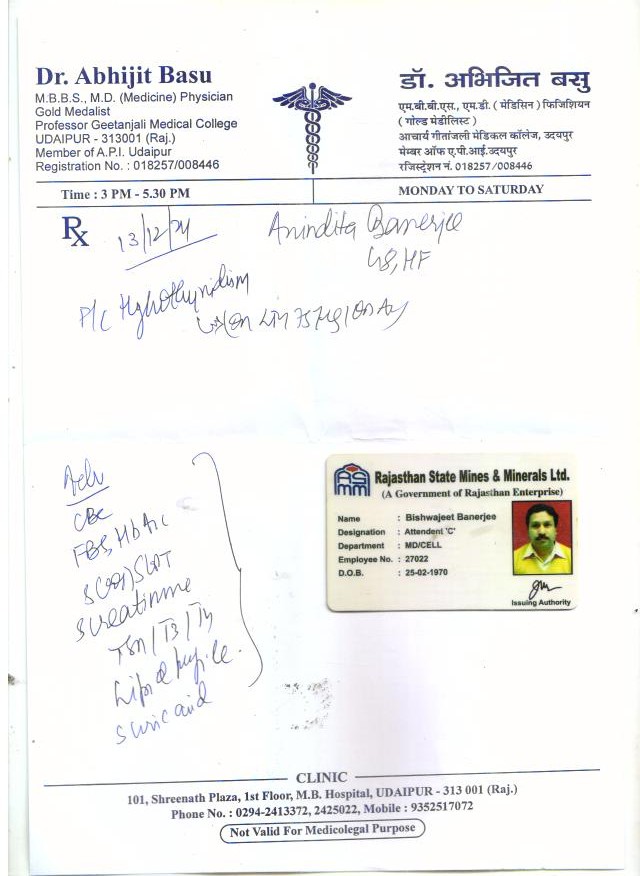 Dr. Abhijit Basu
M.B.B.S., M.D. (Medicine) Physician
Gold Medalist
Professor Geetanjali Medical College
UDAIPUR - 313001 (Raj.)
Member of A.P.I. Udaipur
Registration No. : 018257/008446
डॉ. अभिजित बसु
एम.बी.बी.एस., एम.डी. ( मेडिसिन ) फिजिशियन
( गोल्ड मेडीलिस्ट )
आचार्य गीतांजली मेडिकल कॉलेज, उदयपुर
मेम्बर ऑफ ए.पी.आई.उदयपुर
रजिस्ट्रेशन नं. 018257/008446
Time : 3 PM - 5.30 PM
MONDAY TO SATURDAY
Rx
13/12/24
Anindita Banerjee
48, HF
P/C Hypothyroidism
75 µg/
Adv
CBC
FBS, HbA1c
SGPT
S creatinine
TSH/T3/T4
Lipid profile.
S uric acid
RS
MM
Rajasthan State Mines & Minerals Ltd.
(A Government of Rajasthan Enterprise)
Name : Bishwajeet Banerjee
Designation : Attendent 'C'
Department : MD/CELL
Employee No. : 27022
D.O.B. : 25-02-1970
Issuing Authority
CLINIC
101, Shreenath Plaza, 1st Floor, M.B. Hospital, UDAIPUR - 313 001 (Raj.)
Phone No. : 0294-2413372, 2425022, Mobile : 9352517072
Not Valid For Medicolegal Purpose